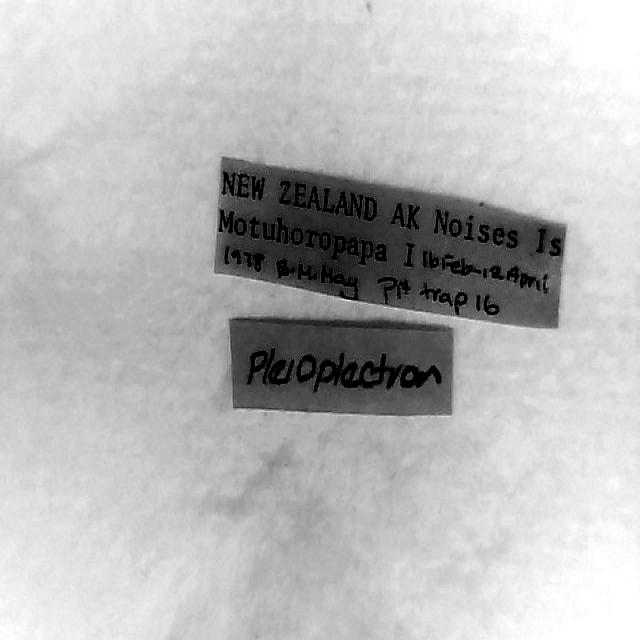 NEW ZEALAND AK Noises Is
Motuhoropapa I 16 Feb-12 April
1978 B.M.May Pit trap 16
Pleioplectron